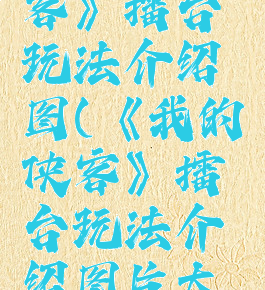 客》擂台
玩法介绍
图(《我的
侠客》擂
台玩法介
绍图片大